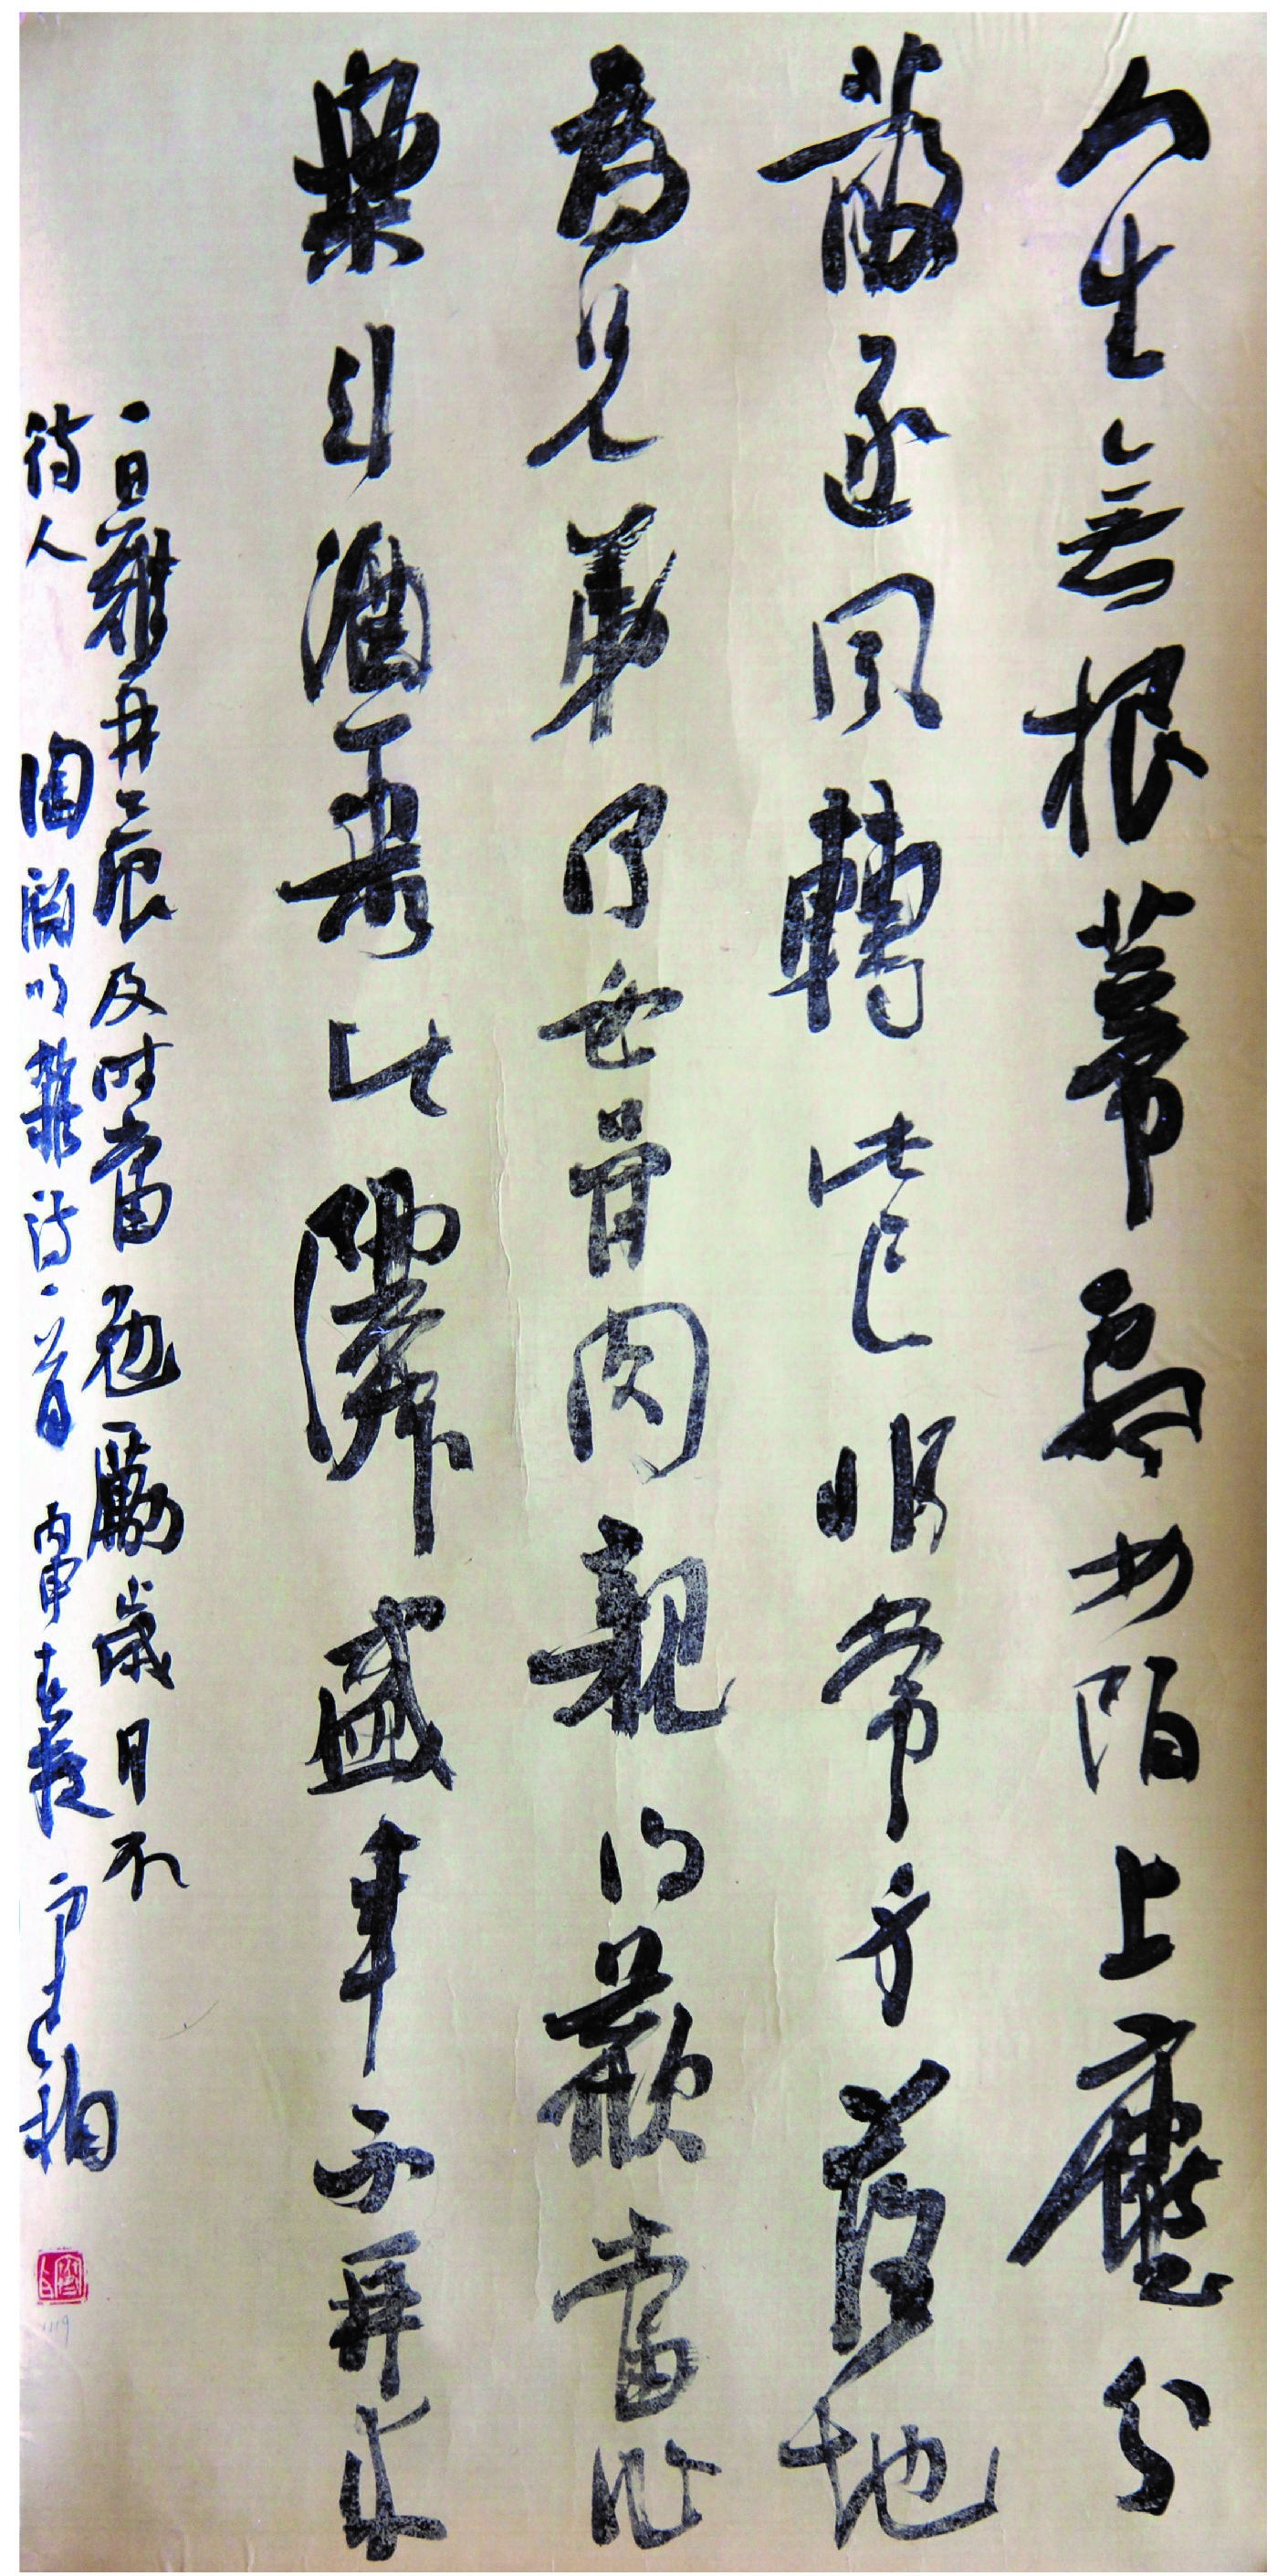 人生無根蒂飄如陌上塵分
散逐風轉此已非常身落地
為兄弟何必骨肉親得歡當作
樂斗酒聚比鄰盛年不再来
一日難再晨及时當勉勵歲月不
待人 陶渊明雜诗一首 丙申